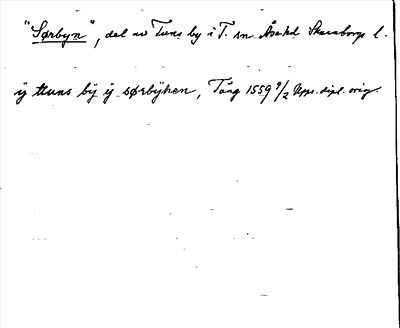 "Sørbyn", del av Tuns by i T. sn Åsehd Skaraborgs l.
ÿ ttuns bÿ ÿ sørbÿhen, Tång 1559 9/2 Upps. dipl. orig.